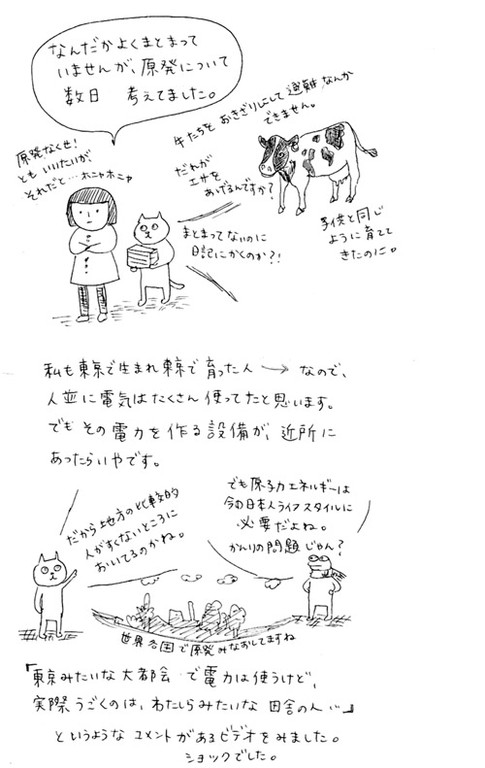 なんだかよくまとまって
いませんが、原発について
数日 考えてました。
原発なくせ!
ともいいたいが、
それだと…ホニャホニャ
牛たちをおきざりにして避難なんか
できません。
だれが
エサを
あげるんですか?
まとまってないのに
日記にかくのか?!
子供と同じ
ように育てて
きたのに。
私も東京で生まれ東京で育った人→なので、
人並に電気はたくさん使ってたと思います。
でもその電力を作る設備が、近所に
あったらいやです。
だから地方の比較的
人がすくないところに
おいてるのかね。
でも原子力エネルギーは
今の日本人ライフスタイルに
必要だよね。
かんりの問題じゃん?
世界各国で原発みなおしてますね
「東京みたいな大都会で電力は使うけど、
実際うごくのは、わたしらみたいな田舎の人…」
というようなコメントがあるビデオをみました。
ショックでした。